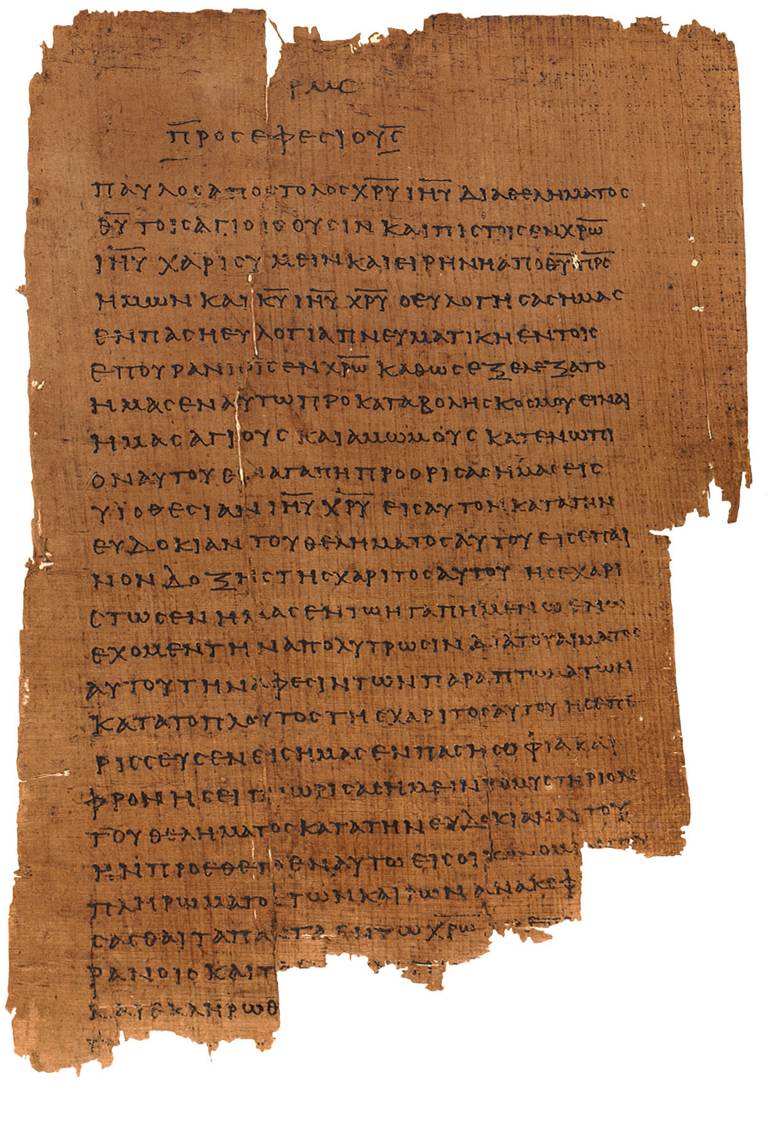 ΡΜϹ
Π̅ΡΟϹΕΦΕϹΙΟΥϹ̅
ΠΑΥΛΟϹΑΠΟϹΤΟΛΟϹΧ̅Ρ̅Υ̅ Ι̅Η̅Υ̅ ΔΙΑΘΕΛΗΜΑΤΟϹ
Θ̅Υ̅ ΤΟΙϹΑΓΙΟΙϹΟΥϹΙΝ ΚΑΙΠΙϹΤΟΙϹΕΝΧ̅Ρ̅Ω̅
Ι̅Η̅Υ̅ ΧΑΡΙϹΥΜΕΙΝΚΑΙΕΙΡΗΝΗΑΠΟΘ̅Υ̅Π̅Ρ̅Ϲ̅
ΗΜΩΝ ΚΑΙΚ̅Υ̅ Ι̅Η̅Υ̅ Χ̅Ρ̅Υ̅ ΟΕΥΛΟΓΗϹΑϹΗΜΑϹ
ΕΝΠΑϹΗΕΥΛΟΓΙΑΠΝΕΥΜΑΤΙΚΗΕΝΤΟΙϹ
ΕΠΟΥΡΑΝΙΟΙϹΕΝΧ̅Ρ̅Ω̅ ΚΑΘΩϹΕΞΕΛΕΞΑΤΟ
ΗΜΑϹΕΝΑΥΤΩΠΡΟΚΑΤΑΒΟΛΗϹΚΟϹΜΟΥΕΙΝΑΙ
ΗΜΑϹΑΓΙΟΥϹ ΚΑΙΑΜΩΜΟΥϹ ΚΑΤΕΝΩΠΙ
ΟΝΑΥΤΟΥΕΝΑΓΑΠΗΠΡΟΟΡΙϹΑϹΗΜΑϹΕΙϹ
ΥΙΟΘΕϹΙΑΝΙ̅Η̅Υ̅ Χ̅Ρ̅Υ̅ ΕΙϹΑΥΤΟΝΚΑΤΑΤΗΝ
ΕΥΔΟΚΙΑΝ ΤΟΥΘΕΛΗΜΑΤΟϹΑΥΤΟΥΕΙϹΕΠΑΙ
ΝΟΝ ΔΟΞΗϹΤΗϹΧΑΡΙΤΟϹΑΥΤΟΥ ΗϹΕΧΑΡΙ
ϹΤΩϹΕΝΗΜΑϹΕΝΤΩΗΓΑΠΗΜΕΝΩΕΝΩ
ΕΧΟΜΕΝΤΗΝΑΠΟΛΥΤΡΩϹΙΝΔΙΑΤΟΥΑΙΜΑΤΟϹ
ΑΥΤΟΥΤΗΝΑΦΕϹΙΝΤΩΝΠΑΡΑΠΤΩΜΑΤΩΝ
ΚΑΤΑΤΟΠΛΟΥΤΟϹΤΗϹΧΑΡΙΤΟϹΑΥΤΟΥ ΗϹΕΠΕ
ΡΙϹϹΕΥϹΕΝΕΙϹΗΜΑϹΕΝΠΑϹΗϹΟΦΙΑΚΑΙ
ΦΡΟΝΗϹΕΙ ΩΡΙϹΑϹΗΜΕΙΝΤΟΜΥϹΤΗΡΙΟΝ
ΤΟΥΘΕΛΗΜΑΤΟϹΚΑΤΑΤΗΝΕΥΔΟΚΙΑΝΑΥΤΟΥ
ΗΝΠΡΟΕΘΕΤΟΕΝΑΥΤΩΕΙϹΟΙΚΟΝΟΜ
ΠΛΗΡΩΜΑΤΟ ΤΩΝΚΑΙΡΩΝΑΝΑΚΕΦ
ϹΑϹΘΑΙΤΑΠΑΝΤΑΕΝΤΩΧ̅Ρ̅Ω̅
ΡΑΝΟΙϹΚΑΙΤ
ΚΑΙΕΚΛΗΡΩΘ